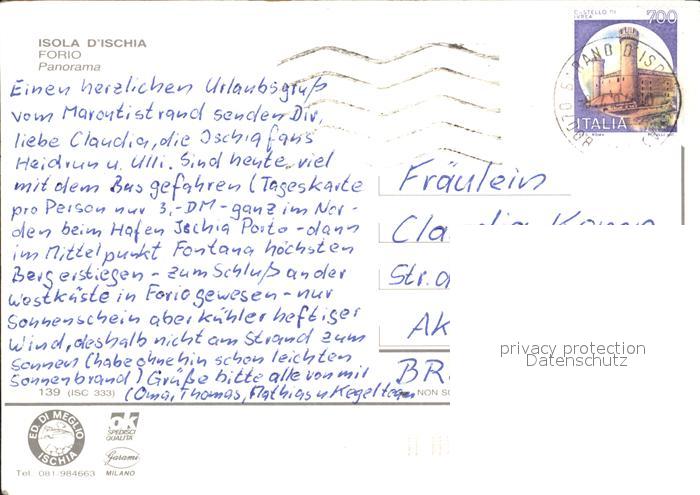 ISOLA D'ISCHIA
FORIO
Panorama
Einen herzlichen Urlaubsgruß
vom Marontistrand senden Dir,
liebe Claudia, die Ischiafans
Heidrun u. Ulli. Sind heute viel
mit dem Bus gefahren (Tageskarte
pro Person nur 3,-DM - ganz im Nor-
den beim Hafen Ischia Porto - dann
im Mittelpunkt Fontana höchsten
Berg erstiegen - zum Schluß an der
Westküste in Forio gewesen - nur
Sonnenschein aber kühler heftiger
Wind, deshalb nicht am Strand zum
Sonnen (habe ohnehin schon leichten
Sonnenbrand) Grüße bitte alle von mir
(Oma, Thomas, Mathias u Kegelteam
139 (ISC 333)
NON
ED. DI MEGLIO
ISCHIA
Tel. 081.984663
ok
SPEDISCI
QUALITA'
Garami
MILANO
CASTELLO DI
IVREA
700
ITALIA
80070
Fräulein
Cla
Str.
Ak
BR
privacy protection
Datenschutz